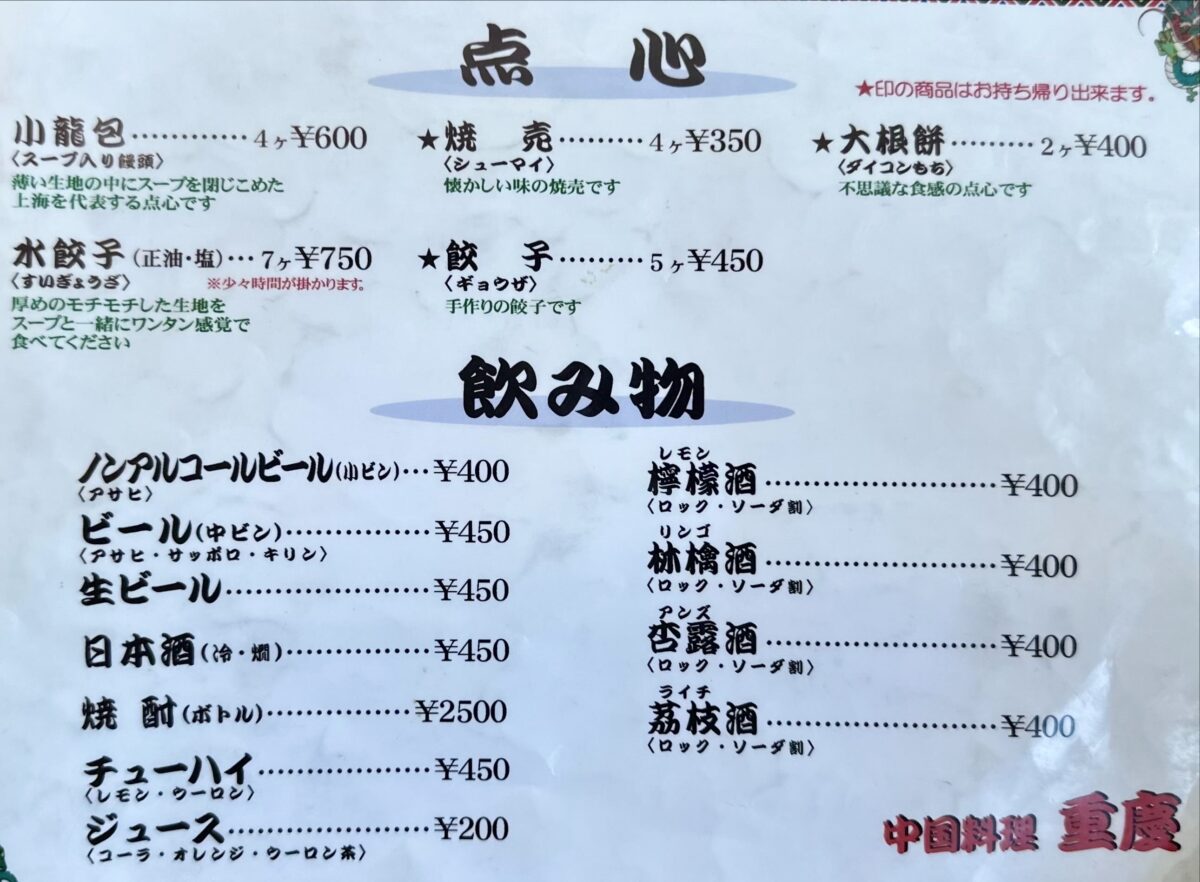 点心
★印の商品はお持ち帰り出来ます。
小龍包…………4ヶ¥600
〈スープ入り饅頭〉
薄い生地の中にスープを閉じこめた
上海を代表する点心です
★焼売………4ヶ¥350
〈シューマイ〉
懐かしい味の焼売です
★大根餅………2ヶ¥400
〈ダイコンもち〉
不思議な食感の点心です
水餃子(正油・塩)…7ヶ¥750
〈すいぎょうざ〉
※少々時間が掛かります。
厚めのモチモチした生地を
スープと一緒にワンタン感覚で
食べてください
★餃子………5ヶ¥450
〈ギョウザ〉
手作りの餃子です
飲み物
ノンアルコールビール(小ビン)…¥400
〈アサヒ〉
ビール(中ビン)……………¥450
〈アサヒ・サッポロ・キリン〉
生ビール…………………¥450
日本酒(冷・燗)……………¥450
焼酎(ボトル)……………¥2500
チューハイ………………¥450
〈レモン・ウーロン〉
ジュース…………………¥200
〈コーラ・オレンジ・ウーロン茶〉
レモン
檸檬酒……………………¥400
〈ロック・ソーダ割〉
リンゴ
林檎酒……………………¥400
〈ロック・ソーダ割〉
アンズ
杏露酒……………………¥400
〈ロック・ソーダ割〉
ライチ
荔枝酒……………………¥400
〈ロック・ソーダ割〉
中国料理 重慶